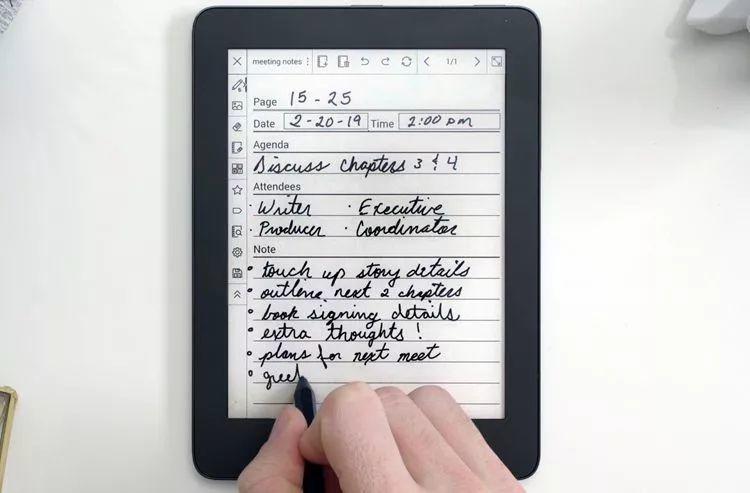 meeting notes 1/1
Page 15 - 25
Date 2-20-19 Time 2:00 pm
Agenda
Discuss Chapters 3 & 4
Attendees
· Writer · Executive
· Producer · Coordinator
Note
• touch up story details
• outline next 2 chapters
• book signing details
• extra thoughts !
• plans for next meet